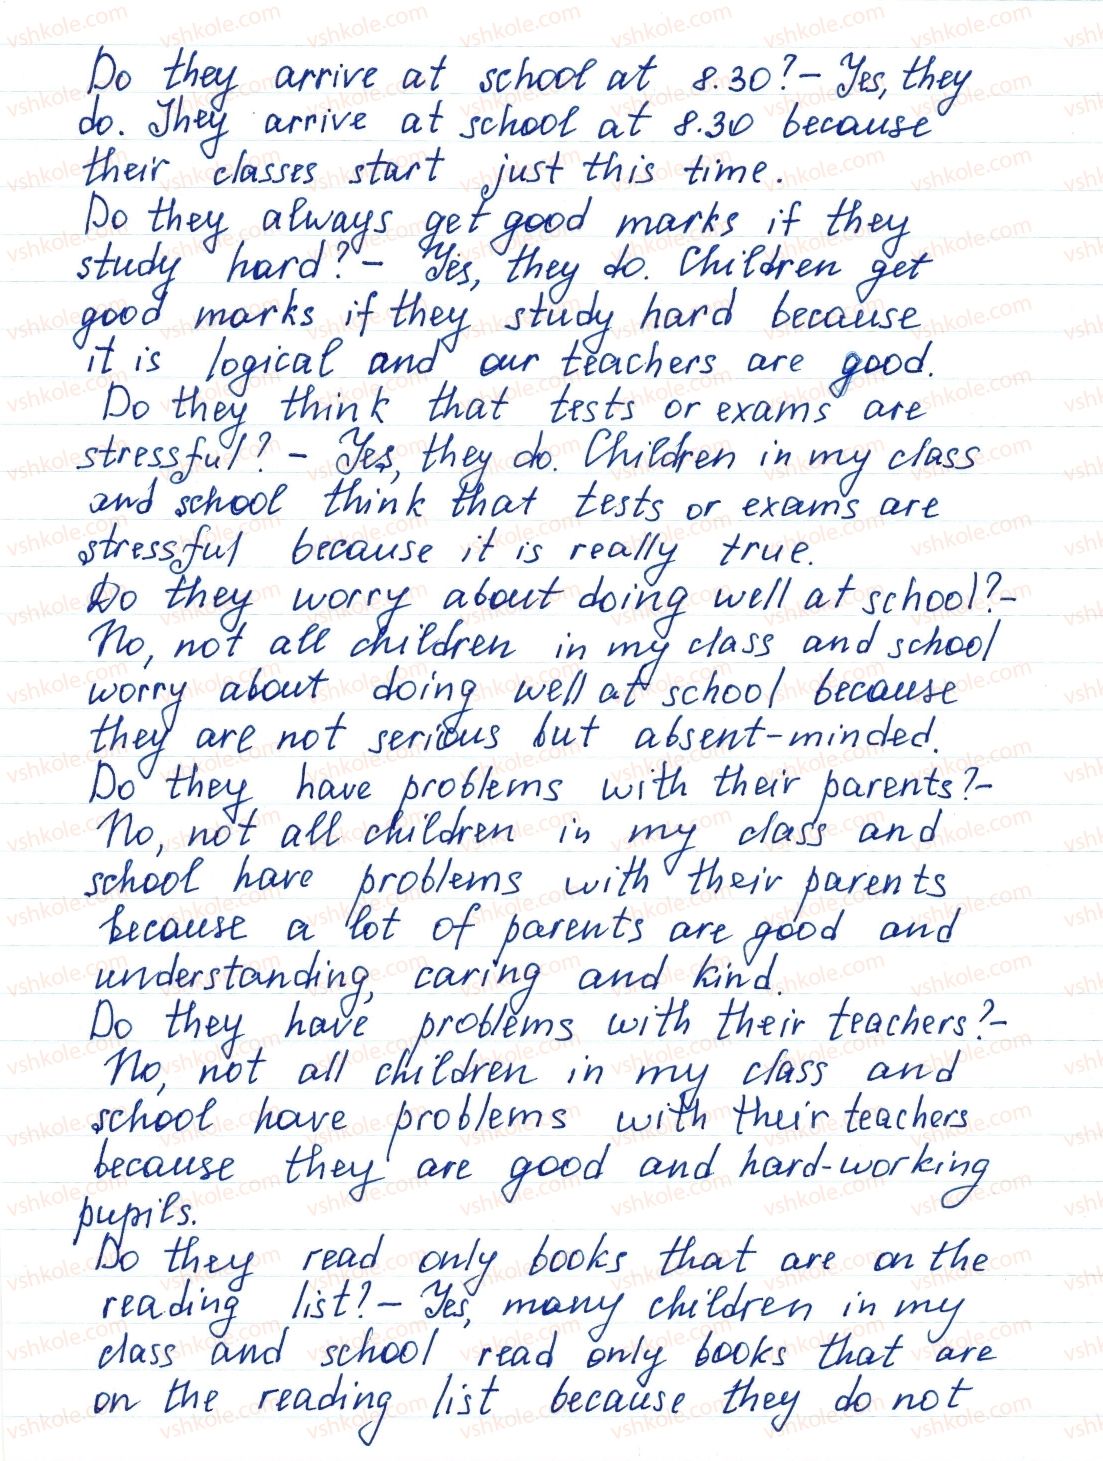 Do they arrive at school at 8.30? – Yes, they
do. They arrive at school at 8.30 because
their classes start just this time.
Do they always get good marks if they
study hard? – Yes, they do. Children get
good marks if they study hard because
it is logical and our teachers are good.
Do they think that tests or exams are
stressful? – Yes, they do. Children in my class
and school think that tests or exams are
stressful because it is really true.
Do they worry about doing well at school? –
No, not all children in my class and school
worry about doing well at school because
they are not serious but absent-minded.
Do they have problems with their parents? –
No, not all children in my class and
school have problems with their parents
because a lot of parents are good and
understanding, caring and kind.
Do they have problems with their teachers? –
No, not all children in my class and
school have problems with their teachers
because they are good and hard-working
pupils.
Do they read only books that are on the
reading list? – Yes, many children in my
class and school read only books that are
on the reading list because they do not
vshkole.com